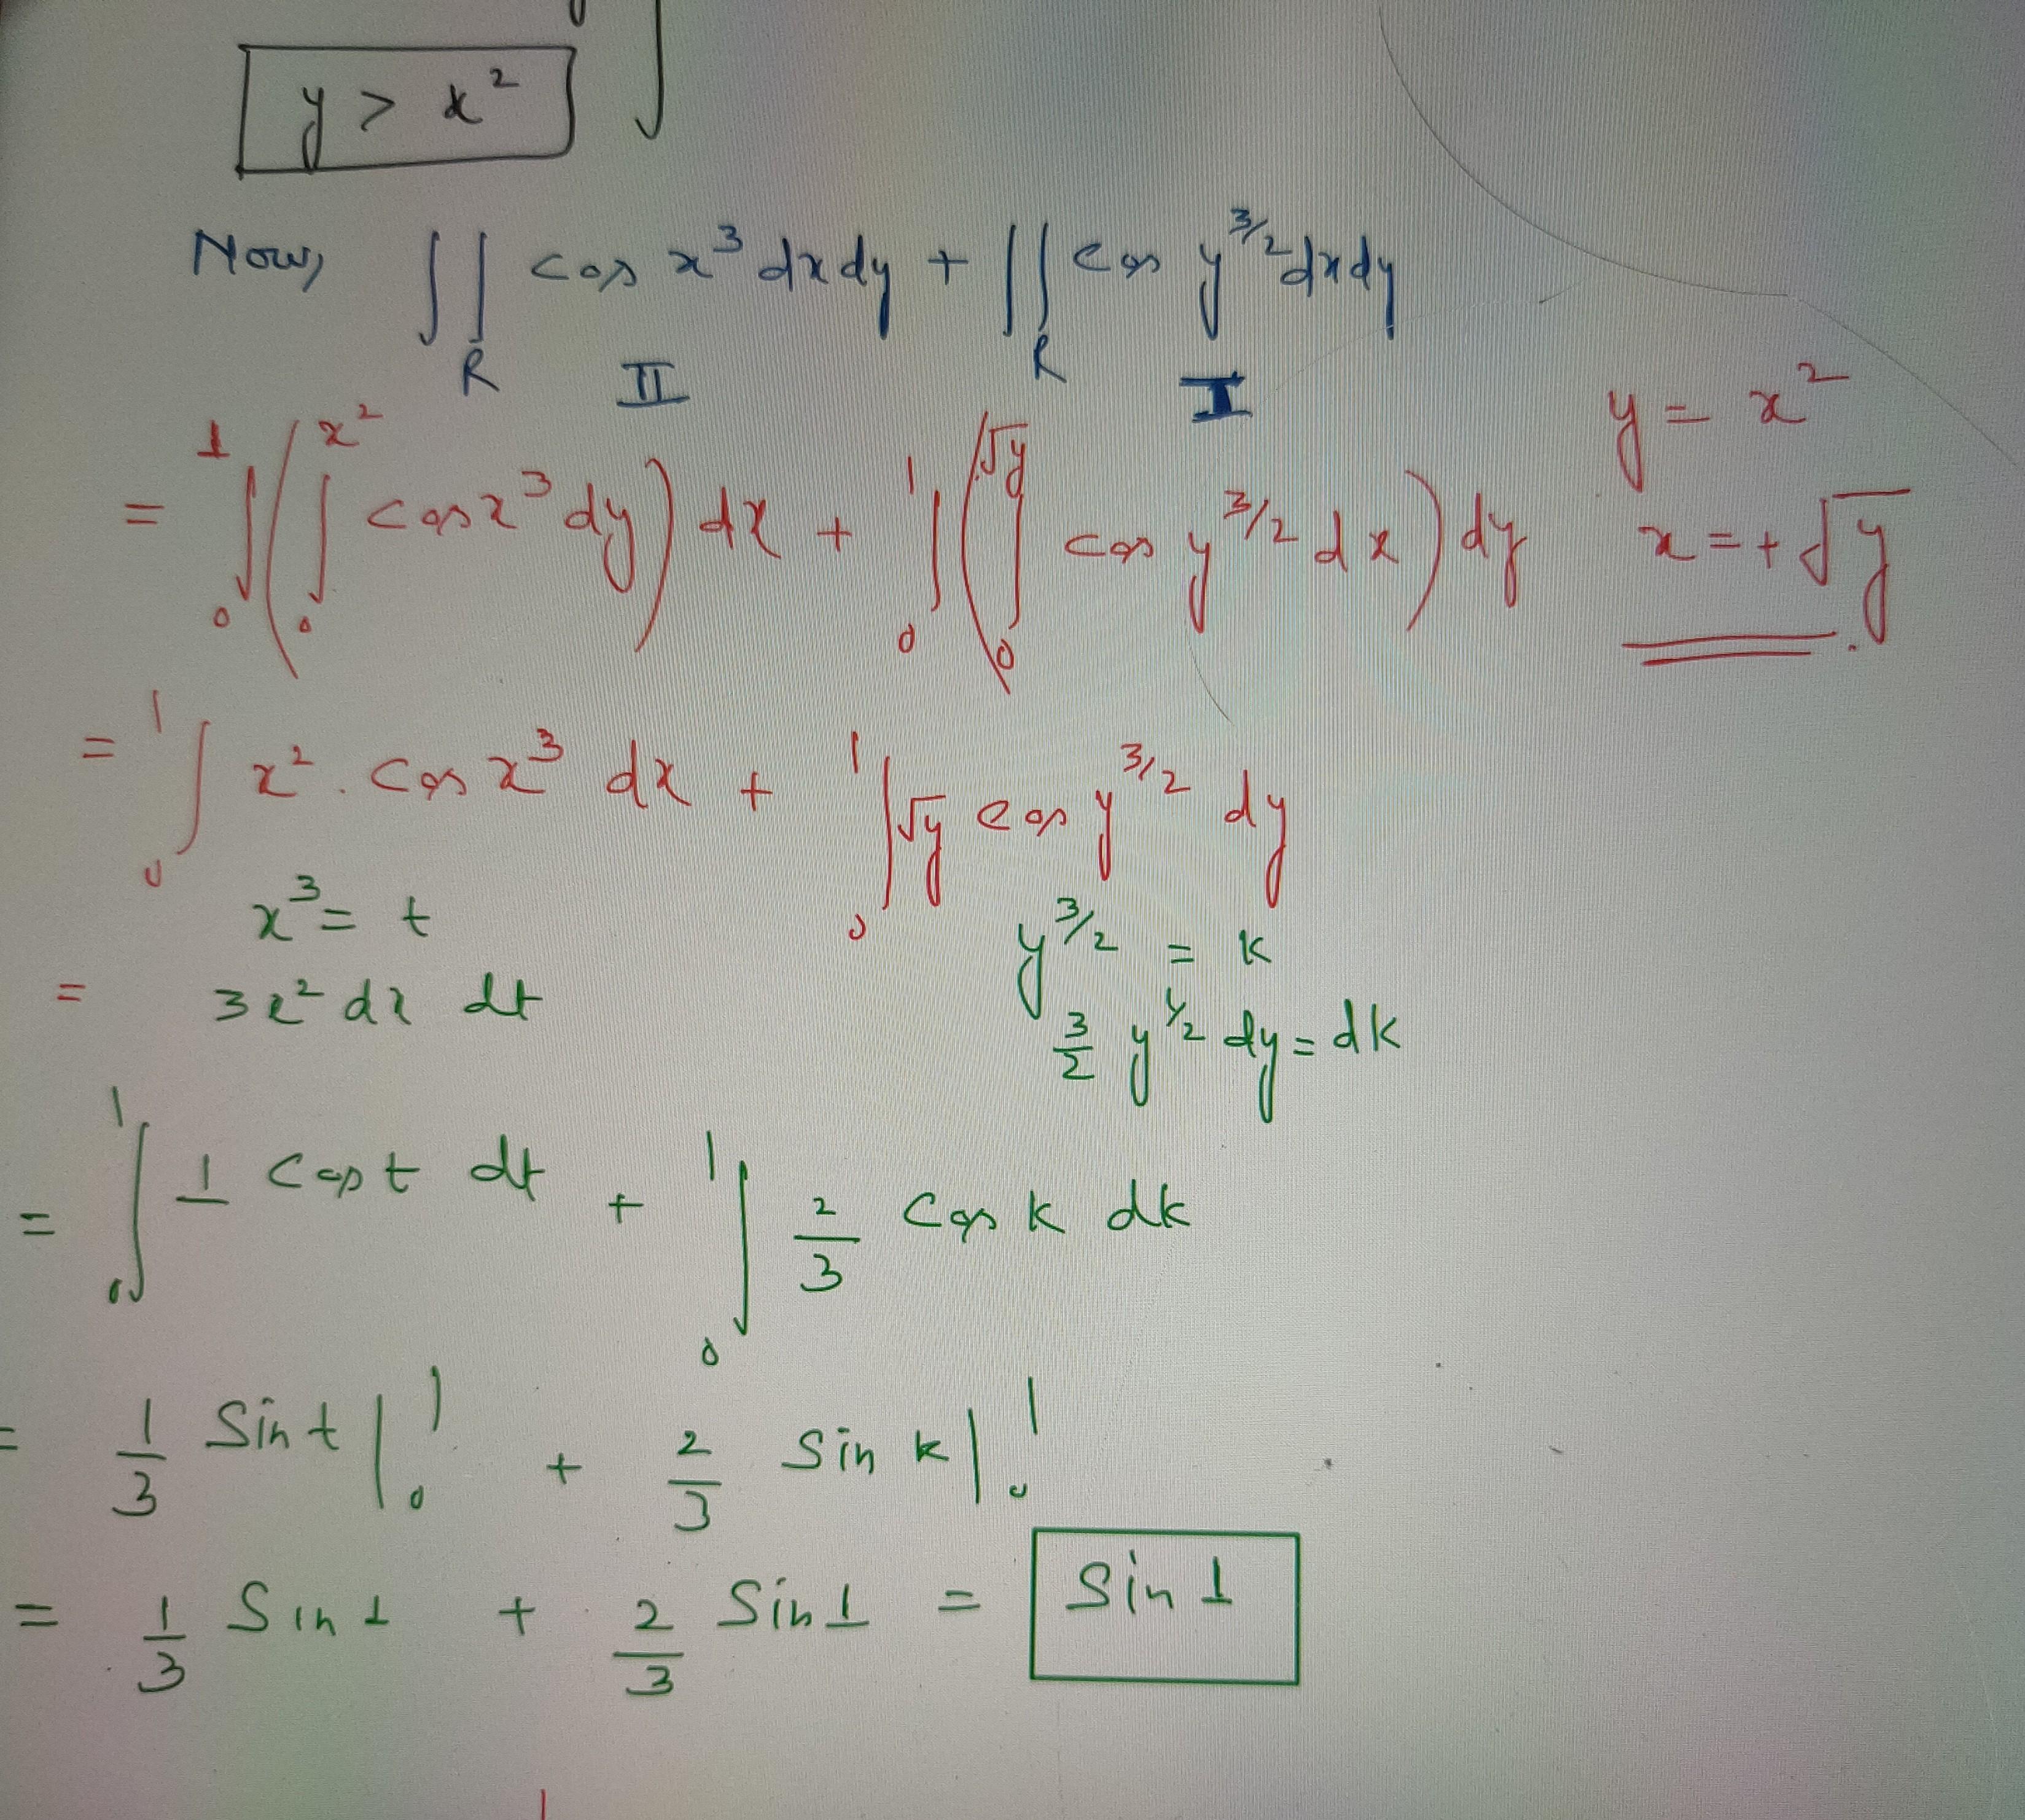 y > x²
Now, ∫∫_R cos x³ dx dy + ∫∫_R cos y^{3/2} dx dy
II I
y = x²
= ∫_0^1 (∫_0^{x²} cos x³ dy) dx + ∫_0^1 (∫_0^{√y} cos y^{3/2} dx) dy
x = + √y
= ∫_0^1 x² . cos x³ dx + ∫_0^1 √y cos y^{3/2} dy
x³ = t y^{3/2} = k
= 3x² dx dt 3/2 y^{1/2} dy = dk
= ∫_0^1 1 cos t dt + ∫_0^1 2/3 cos k dk
= 1/3 Sin t |_0^1 + 2/3 Sin k |_0^1
= 1/3 Sin 1 + 2/3 Sin 1 = Sin 1